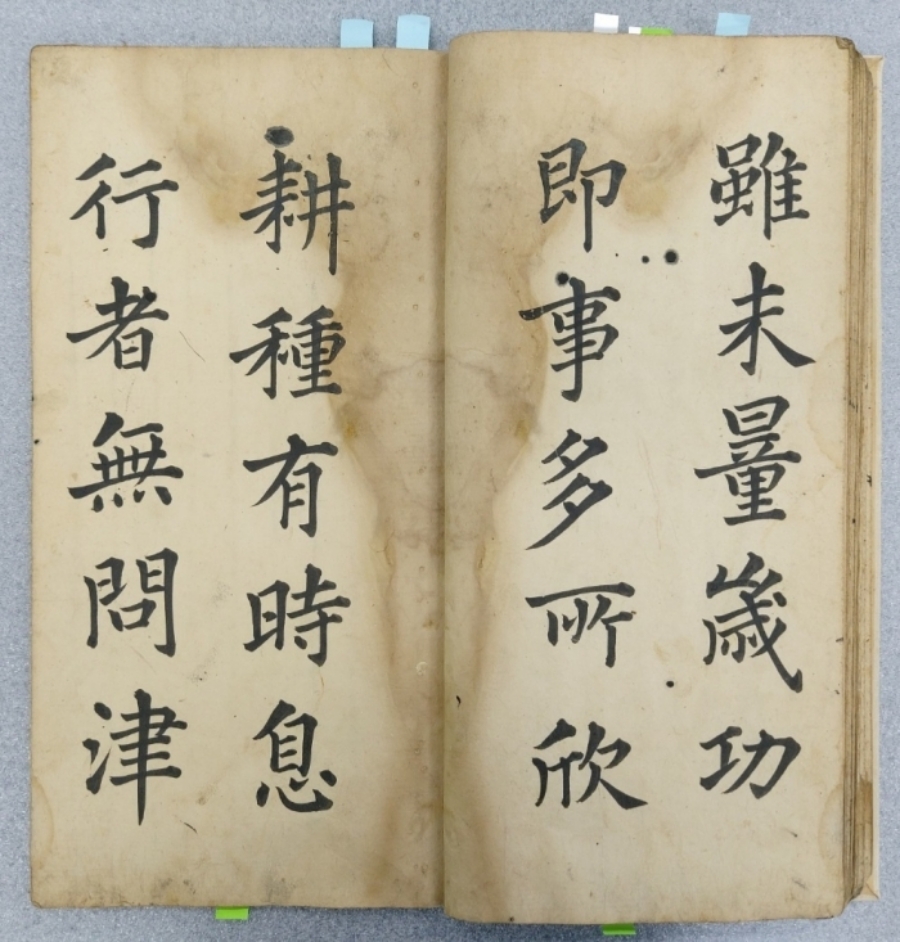 雖未量歲功
即事多所欣
耕種有時息
行者無問津